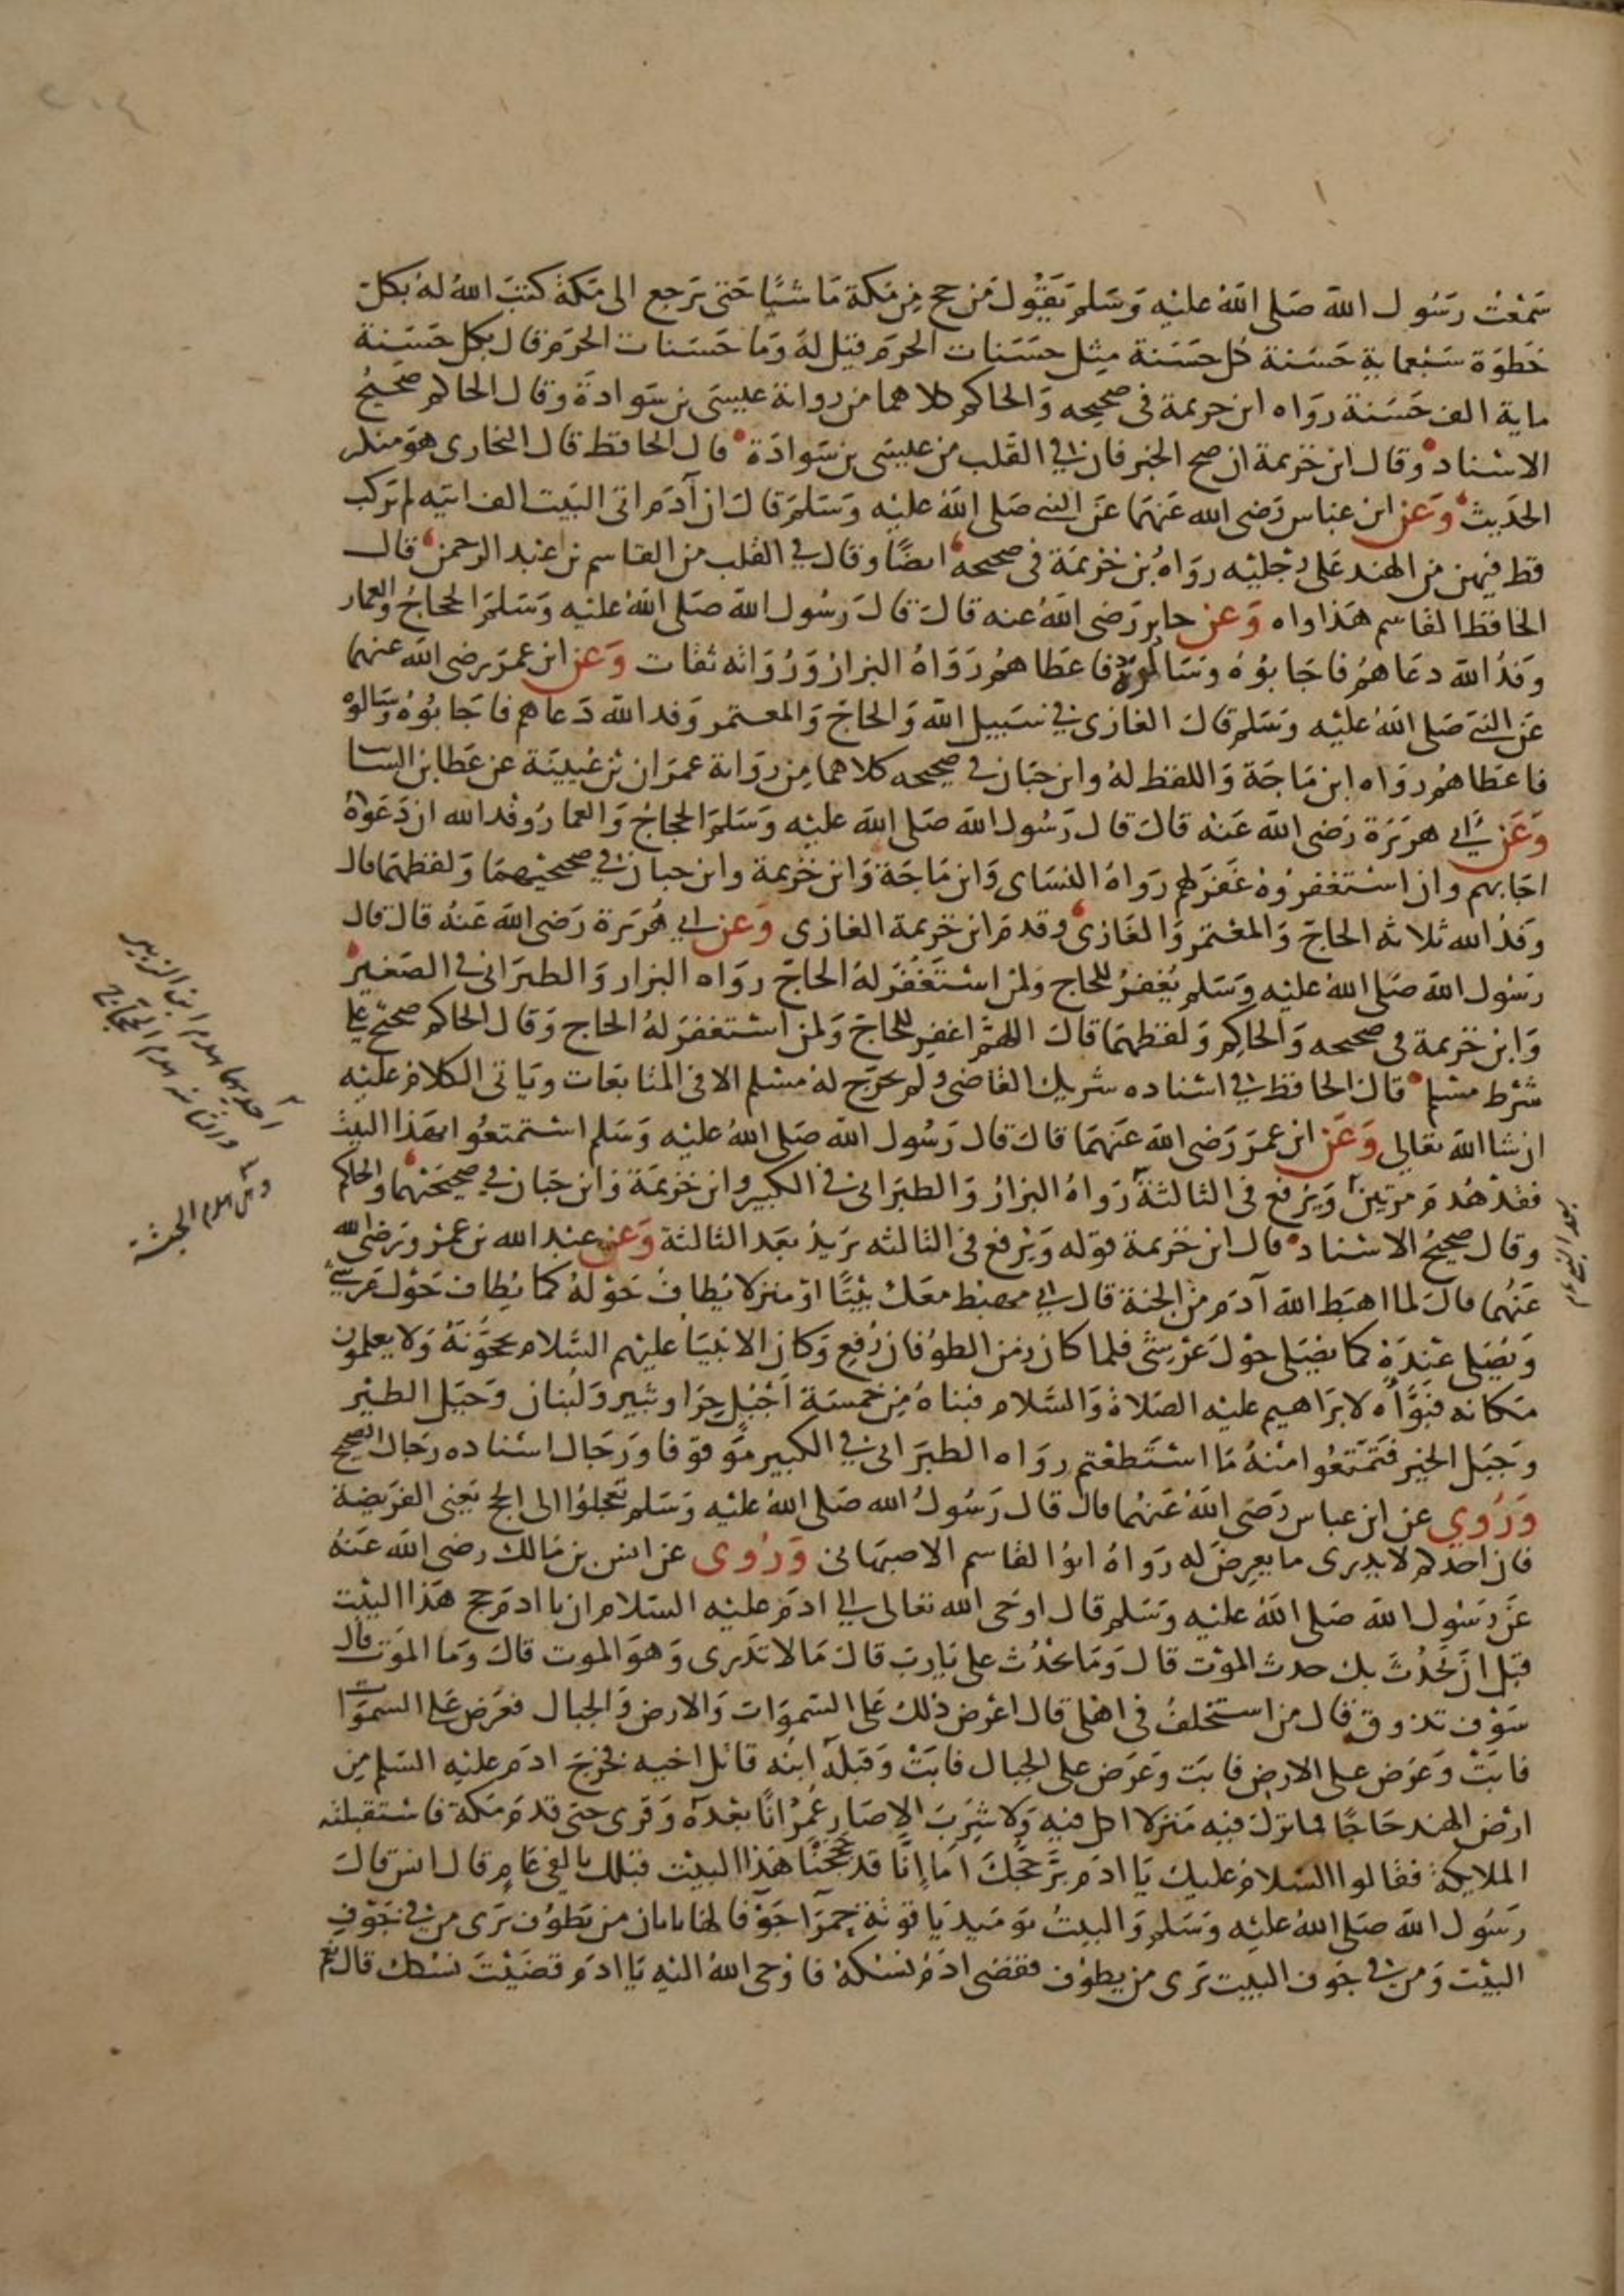 سَمعْتُ رَسُول الله صَلى اللهُ عليْه وَسَلم يَقوُل مَن حج مِن مَكة مَاشيًا حَتى يَرجع الى مَكة كتبَ اللهُ لهُ بكل
خَطوَة سَبْعماية حَسَنة كل حسَنة مِثل حسَنات الحرَم قيْل لهُ وَما حَسَنات الحرَم قال بكل حَسَنة
ماية الف حَسَنة روَاه ابن خزيمة فى صحيحه وَالحاكم كلاهما من رواية عيسَى بن سَوادَة وقال الحاكم صَحيحُ
الاسْناد وقال ابن خزيمة ان صح الخبر فان فى القَلب من عيسَى بن سَوادَة قال الحافظ قال البخارى هوَ منكر
الحَديث وَعَن ابن عباس رَضى الله عَنهمَا عَن النبى صَلى اللهُ عليْه وَسَلم قال ان آدَم اتى البَيت الف اتيه لم يَركب
قط فيهن من الهند عَلى رجْليْه روَاهُ بن خزيمَة فى صحيحه ايضًا وقال فى القلب من القاسم بن عَبْد الرحمن قال
الحَافظ القاسم هَذا واه وَعَن جابر رَضى اللهُ عنه قال قال رَسُول الله صَلى اللهُ عليْه وَسَلم الحجاجُ وَالعمار
وَفدُ الله دعَاهمُ فاجَابوُهُ وسَالوهُ فاعَطاهمُ رَوَاهُ البزارُ وَرُوَاته ثقات وَعَن ابن عمَر رضى الله عنهمَا
عَن النبى صَلى اللهُ عليْه وَسَلم قال الغازى فى سَبيل الله وَالحاج وَالمعتمر وَفد الله دَعاهم فاجَابوُهُ وَسَالوهُ
فاعَطاهمُ روَاه ابن مَاجَة وَاللفظ لهُ وابن حبَان فى صحيحه كلاهما مِن روَاية عمرَان بن عُيينَة عن عَطا بن السايب
وَعَن أبى هريَرة رَضى الله عَنه قال قال رَسُول الله صَلى الله عليْه وَسَلم الحجاجُ وَالعمارُ وَفد الله ان دَعَوْهُ
اجَابهم وان اسْتغفرُوهُ غَفرَ لهم روَاهُ النسَاى وَابن مَاجَة وَابن خزيمة وابن حبان فى صحيحيْهمَا وَلفظهمَا قال
وَفدُ الله ثلاثه الحاج وَالمعْتمر وَالغَازى وقدم ابن خزيمَة الغازى وَعَن ابى هُريَرة رَضى الله عَنهُ قال قال
رسُول الله صَلى اللهُ عليْه وَسَلم يُغفرُ للحاج وَلمن اسْتغَفرَ لهُ الحاج روَاه البزار وَالطبرَانى فى الصَغير
وَابن خزيمة فى صحيحه وَالحاكم وَلفظهمَا قال اللهمَّ اغفِر للحَاج وَلمن اسْتغفرَ لهُ الحاج وَقال الحاكم صَحيحٌ على
شرْط مسْلم قال الحافظ فى اسْناده شريك القاضى ولم يخرّج لهُ مسْلم الا فى المتابعَات وَيَاتى الكلامُ عليْه
ان شا الله تعَالى وَعَن ابن عمَر رَضى الله عَنهمَا قال قال رَسُول الله صَلى اللهُ عليْه وَسَلم اسْتمتعُوا بهَذا البَيت
فقدْ هُدمَ مرتيْن وَيرفع فى الثالثة روَاهُ البزارُ وَالطبرَانى فى الكبير وابن خزيمَة وَابن حبَان فى صَحيحَيْهمَا وَالحاكم
وقال صَحيحُ الاسْناد قال ابن خزيمة قوْله وَيُرفع فى الثالثه يريدُ بعَد الثالثة وَعَن عبْد الله بن عمْرو رَضى الله
عَنهُما قال لما اهبَط الله آدَم من الجنة قال انى مهبْط معَك بَيْتًا اوْ منزلا يُطاف حَوْلهُ كما يُطاف حَوْل عَرشى
وَيُصَلى عنْدَهُ كما يُصَلى حوْل عَرْشى فلما كان زمَن الطوُفان رُفع وَكان الانبيَا عليْهم السَّلام يحجُّونَهُ وَلا يعلمُون
مَكانه فبَوَّأه لابرَاهيم عليْه الصَلاةُ وَالسَّلام فبناهُ مِن خمسَة اجْبُل حِرَا وثبير وَلبنان وَجبَل الطيْر
وجَبَل الخير فتَمَتعُوا منْهُ مَا اسْتَطعْتم روَاه الطبرَانى فى الكبير موَقوفا وَرجَال اسْناده رجَال الصَحيح
وَرُوِي عن ابن عباس رَضى اللهُ عَنهُما قال قال رَسُولُ الله صَلى اللهُ عليْه وَسَلم تَعَجلوُا الى الحج يَعْنى الفريَضة
فان احدكم لا يدرى ما يعرِضَ له روَاهُ ابوُ القاسم الاصبهَانى وَرُوى عَن انس بن مَالك رضى الله عَنهُ
عَن رَسُول الله صَلى اللهُ عليْه وَسَلم قال اوحَى الله تعَالى الى ادَم عليْه السَلام ان يا ادم حج هَذا البيْت
قبْل ان يَحْدُثَ بك حدث الموْت قال وَمَا يحْدُث على يَا رب قال مَا لا تدَرى وَهوَ الموت قال وَما الموْت قال
سَوْف تذوق قال من استخلفُ فى اهْلى قال اعْرض ذلك عَلى السَموَات وَالارض وَالجبال فعَرضَ عَلى السموَات
فابَتْ وَعَرَض على الارض فابَت وعَرَض على الجبال فابَتْ وَقبَلهَ ابنه قاتل اخيه فخرَجَ ادَم عليْه السَلم من
ارْض الهند حَاجًا فما نزل فيه مَنزلا اكل فيه وَلا شَرِبَ الا صَار عُمرْانًا بعْدهُ وَقرى حتى قدمَ مَكة فاسْتقبلته
الملايكة فقالوا السَلامُ عليك يَا ادَم بَرَّ حَجكَ امَا إنّا قد حَجَجْنا هَذا البيْت قبْلك بالفى عَامٍ قال انس قال
رَسُول الله صَلى اللهُ عليْه وَسَلم وَالبيتُ يوَميْذ يَاقوتهَ حمرَا جَوْفا لهَا بابان من يَطوُف يَرى من فى جَوْف
البيْت وَمن فى جَوف البيت يَرى من يطوُف فقضى ادَم نسُكهُ فاوْحى اللهُ اليْه يَا ادَم قضَيْتَ نسُكك قال نعم
احديهما هدم ابن الزبير
والثانيه هدم الحجاج
هدم الحبشة